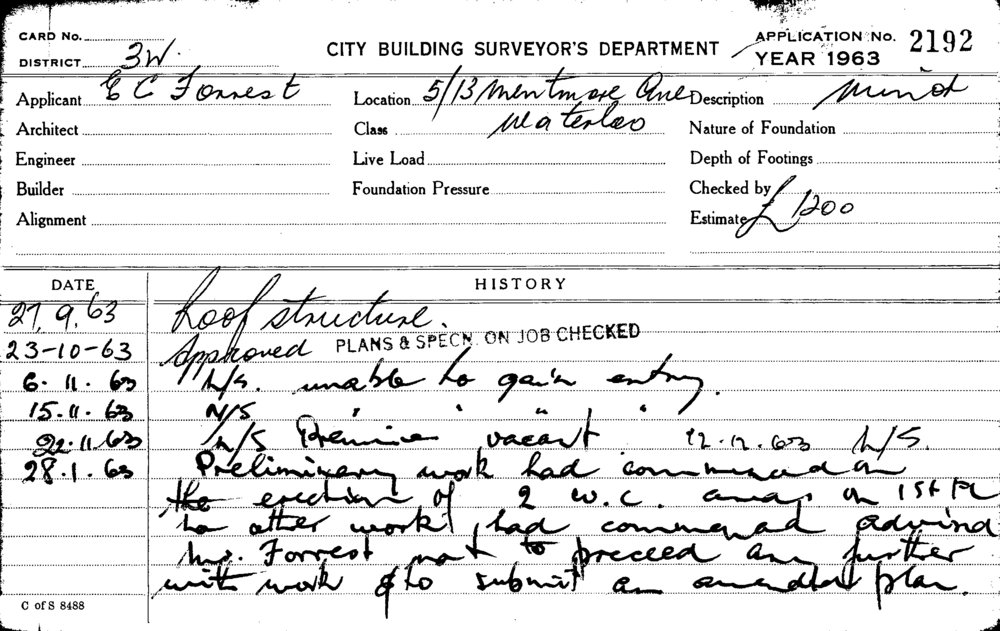 CARD No.
DISTRICT 3W.
CITY BUILDING SURVEYOR'S DEPARTMENT
APPLICATION No. 2192
YEAR 1963
Applicant E C Forrest
Location 5/13 Mentmore Ave
Waterloo
Description Minor
Architect
Class
Nature of Foundation
Engineer
Live Load
Depth of Footings
Builder
Foundation Pressure
Checked by
Alignment
Estimate £1200
DATE HISTORY
27.9.63 Roof structure.
23-10-63 Approved PLANS & SPECN. ON JOB CHECKED
6.11.63 N/S. unable to gain entry.
15.11.63 N/S " " " "
22.11.63 N/S Premise vacant 12.12.63 N/S.
28.1.63 Preliminary work had commenced on
the erection of 2 W.C. areas on 1st Fl
no other work had commenced advised
Mr. Forrest not to preceed any further
with work & to submit an amended plan.
C of S 8488